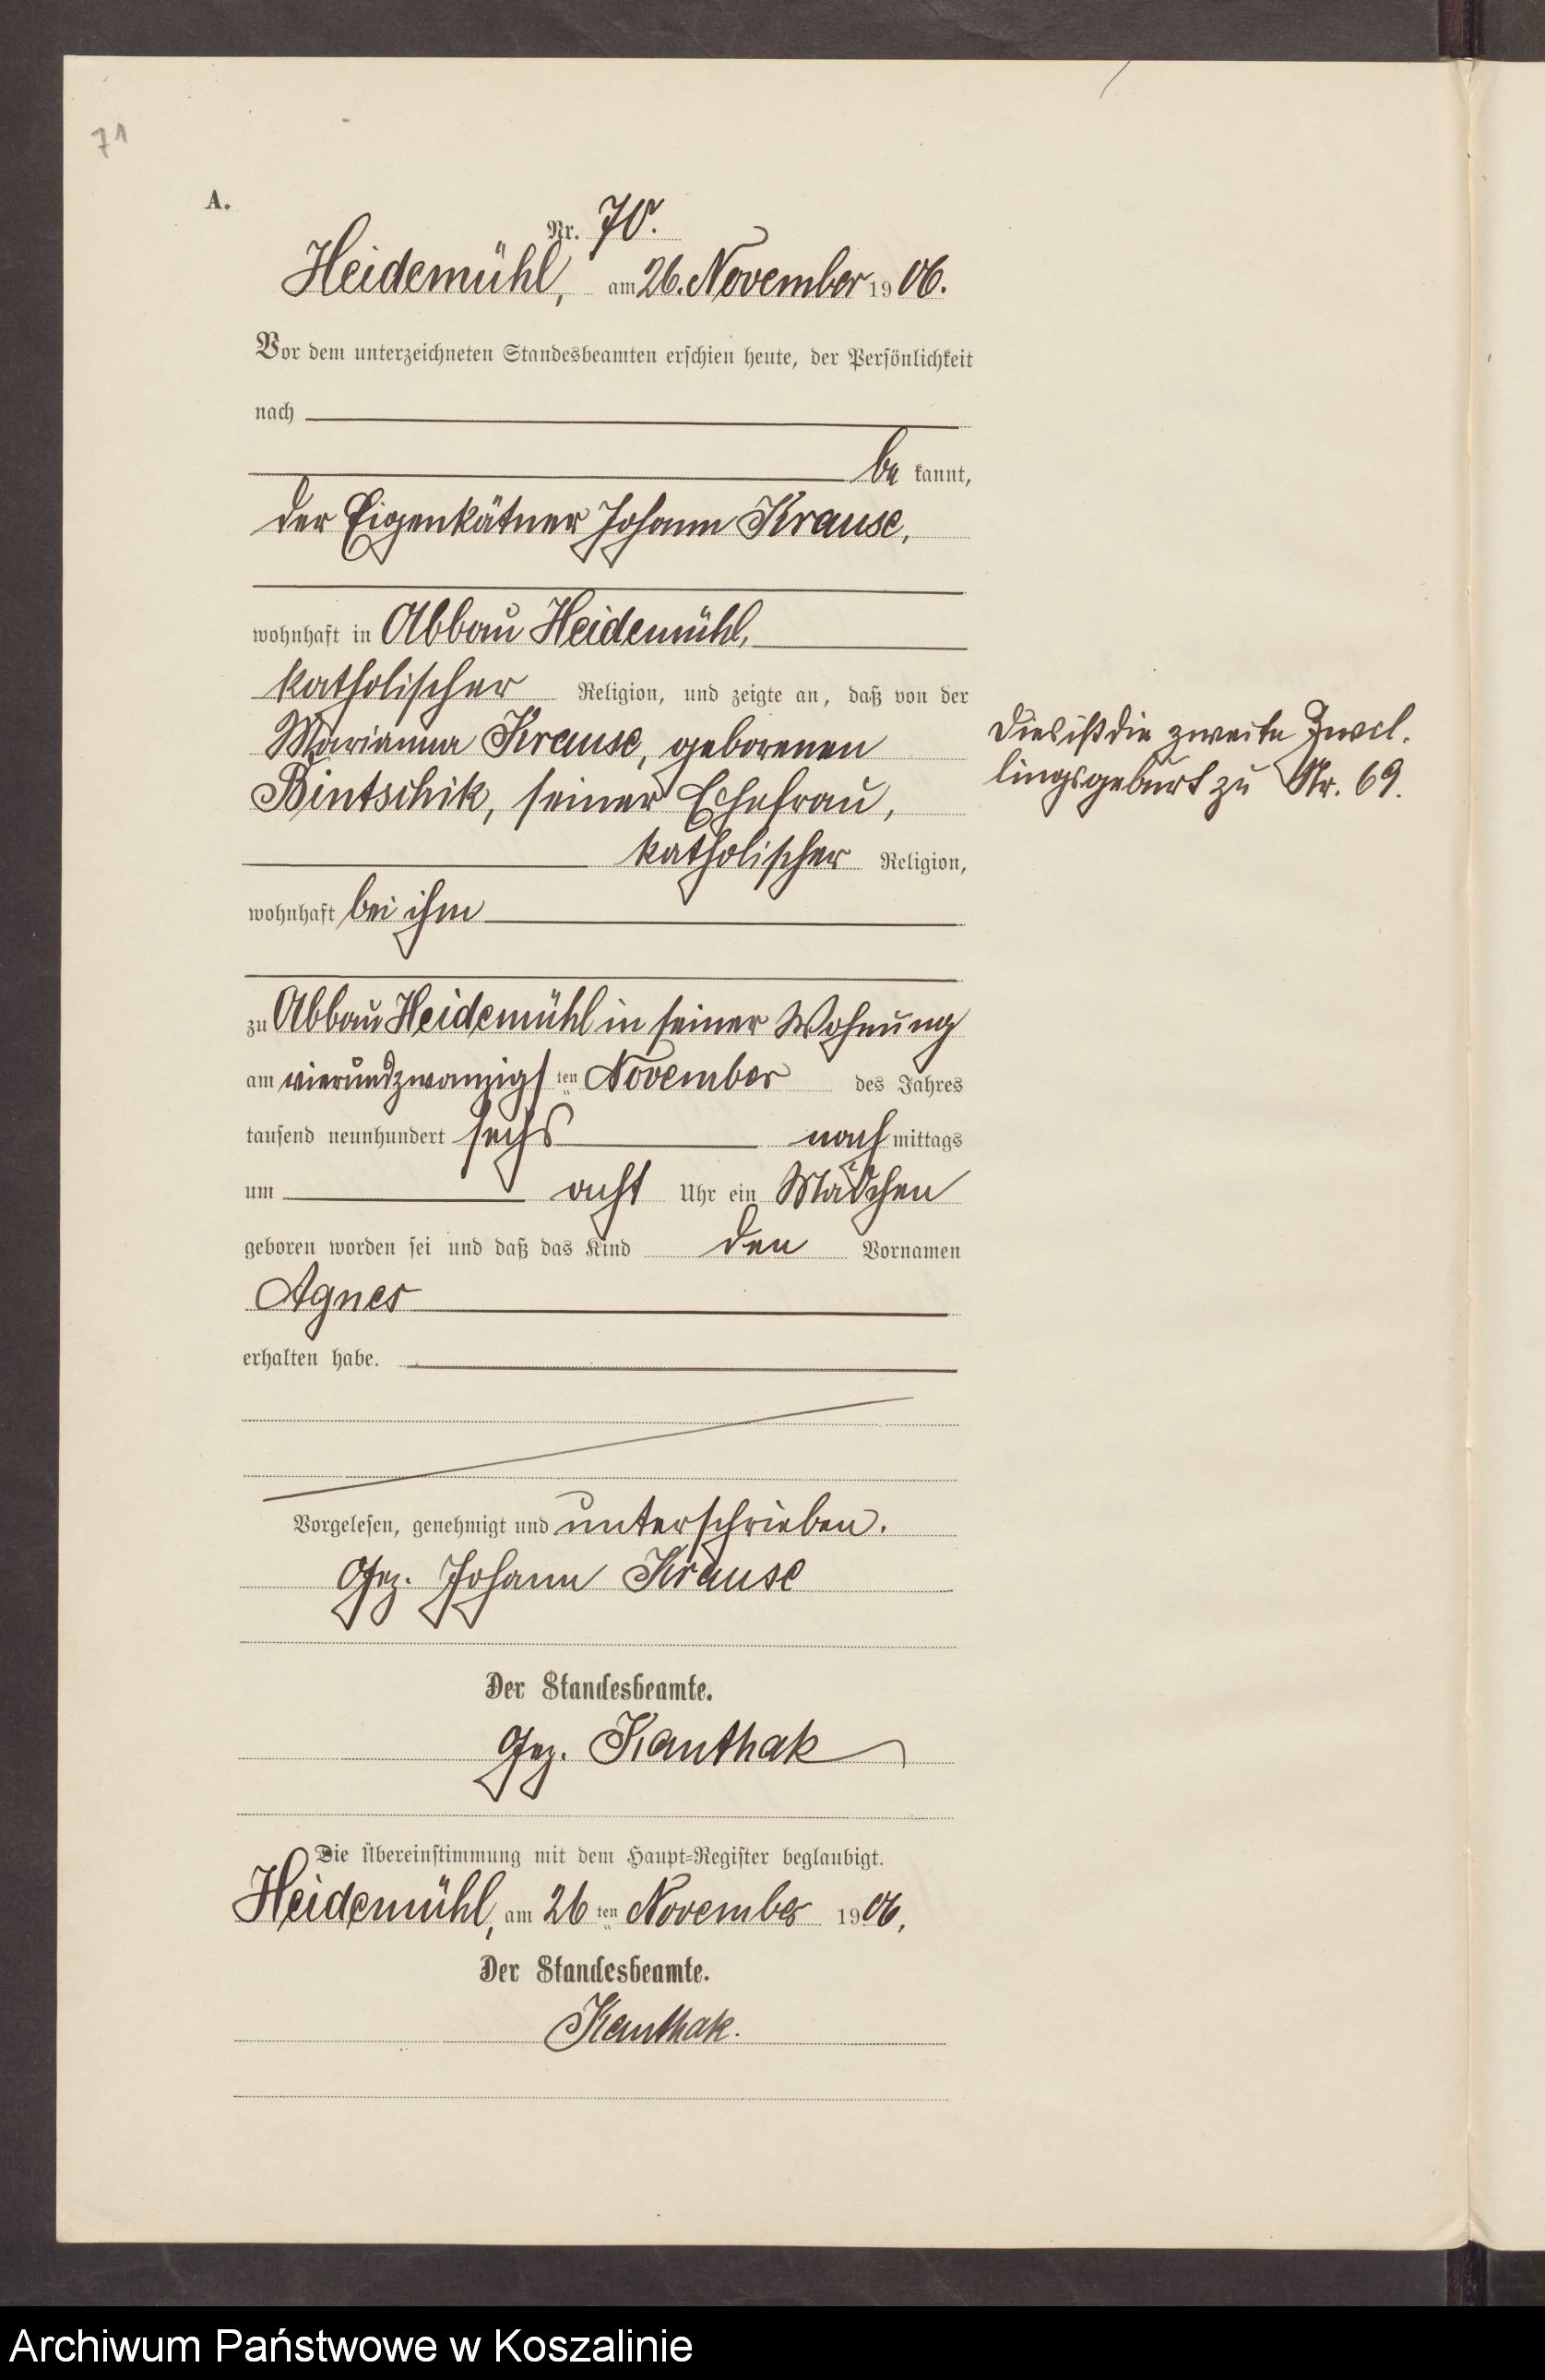 71
A.
Nr. 70.
Heidemühl, am 26. November 1906.
Vor dem unterzeichneten Standesbeamten erschien heute, der Persönlichkeit
nach
be kannt,
der Eigenkätner Johann Krause,
wohnhaft in Abbau Heidemühl,
katholischer Religion, und zeigte an, daß von der
Marianna Krause, geborenen
Bintschik, seiner Ehefrau,
katholischer Religion,
wohnhaft bei ihm
zu Abbau Heidemühl in seiner Wohnung
am vierundzwanzigsten November des Jahres
tausend neunhundert sechs nachmittags
um acht Uhr ein Mädchen
geboren worden sei und daß das Kind den Vornamen
Agnes
erhalten habe.
Dies ist die zweite Zwil-
lingsgeburt zu Nr. 69.
Vorgelesen, genehmigt und unterschrieben.
Gez. Johann Krause
Der Standesbeamte.
Gez. Kanthak
Die Übereinstimmung mit dem Haupt-Register beglaubigt.
Heidemühl, am 26ten November 1906.
Der Standesbeamte.
Kanthak.
Archiwum Państwowe w Koszalinie